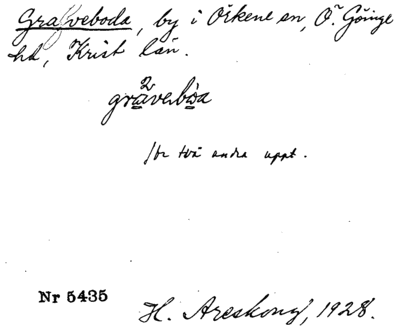 Grafveboda, by i Örkene sn, Ö. Göinge
hd, Krist län.
grävebo̤a
för två andra uppt.
Nr 5435
H. Areskoug, 1928.